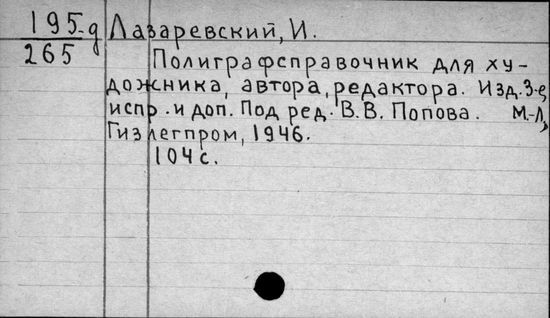 195-д
265
Лазаревский, И.
Полиграфсправочник для ху-
дожника, автора, редактора. Изд. 3-е,
испр. и доп. Под ред. В.В. Попова. М.-Л,
Гизлегпром, 1946.
104 с.